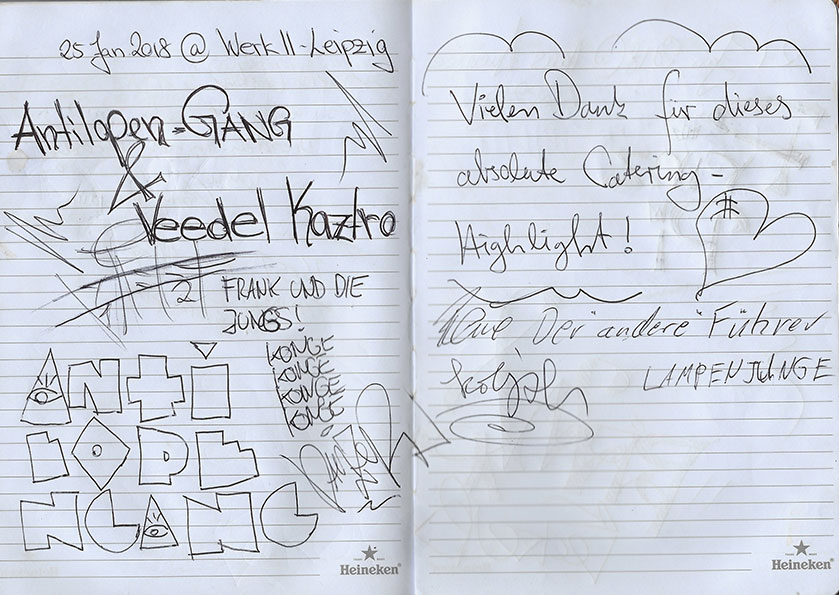 25 Jan 2018 @ Werk II - Leipzig
Antilopen-GANG
&
Veedel Kaztro
2
FRANK UND DIE
JUNGS!
KONGE
KONGE
KONGE
KONGE
ANTI
LOPE
NGANG
Heineken
Vielen Dank für dieses
absolute Catering-
Highlight!
#
Der "andere" Führer
LAMPENJUNGE
Koljah
Heineken